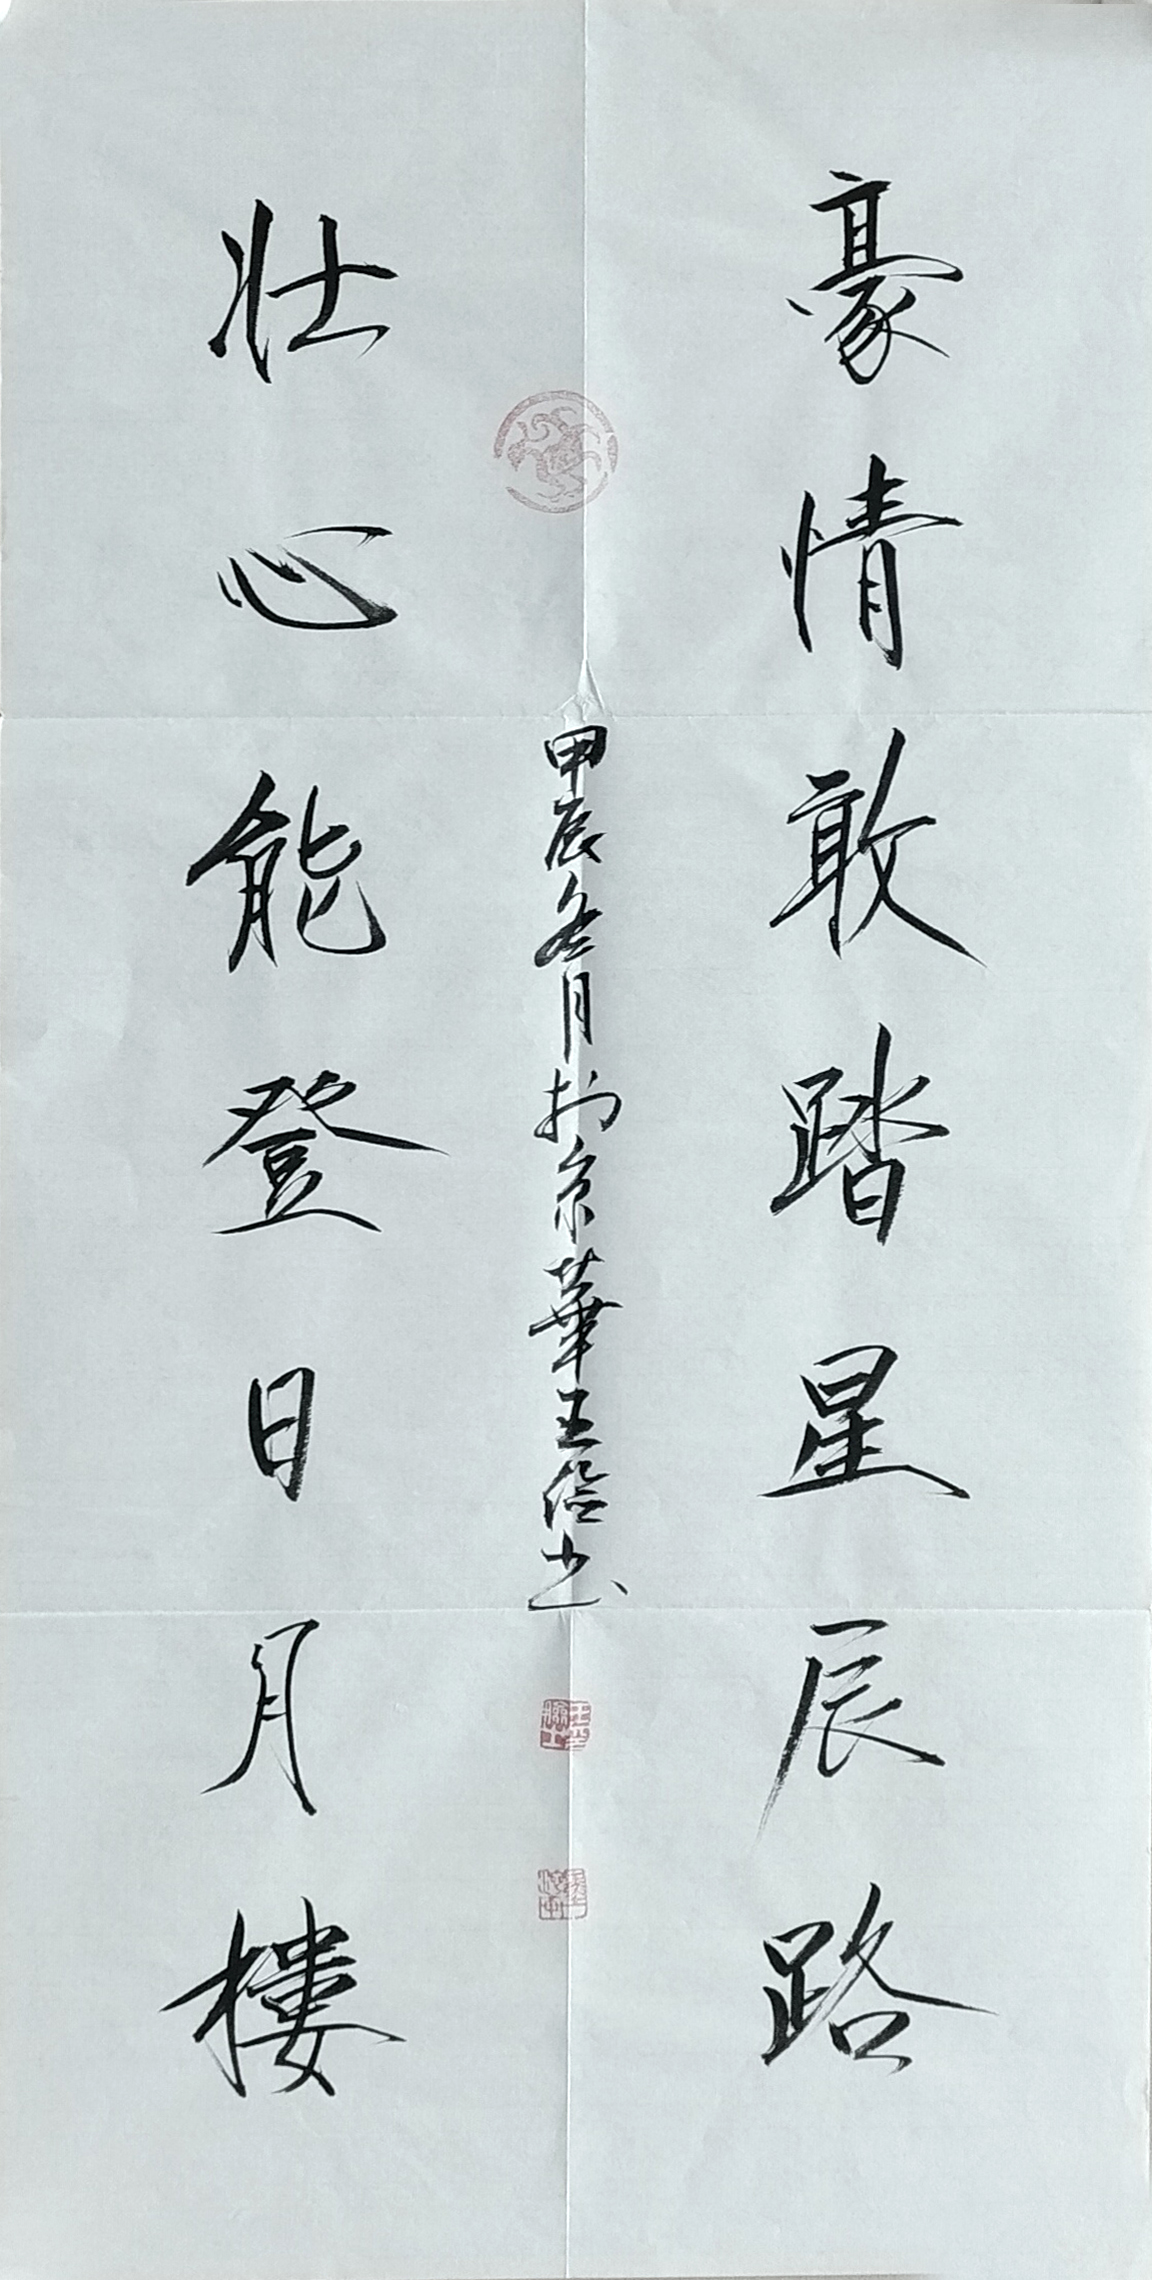 豪情敢踏星辰路
甲辰冬月於京華王佮书
壮心能登日月樓